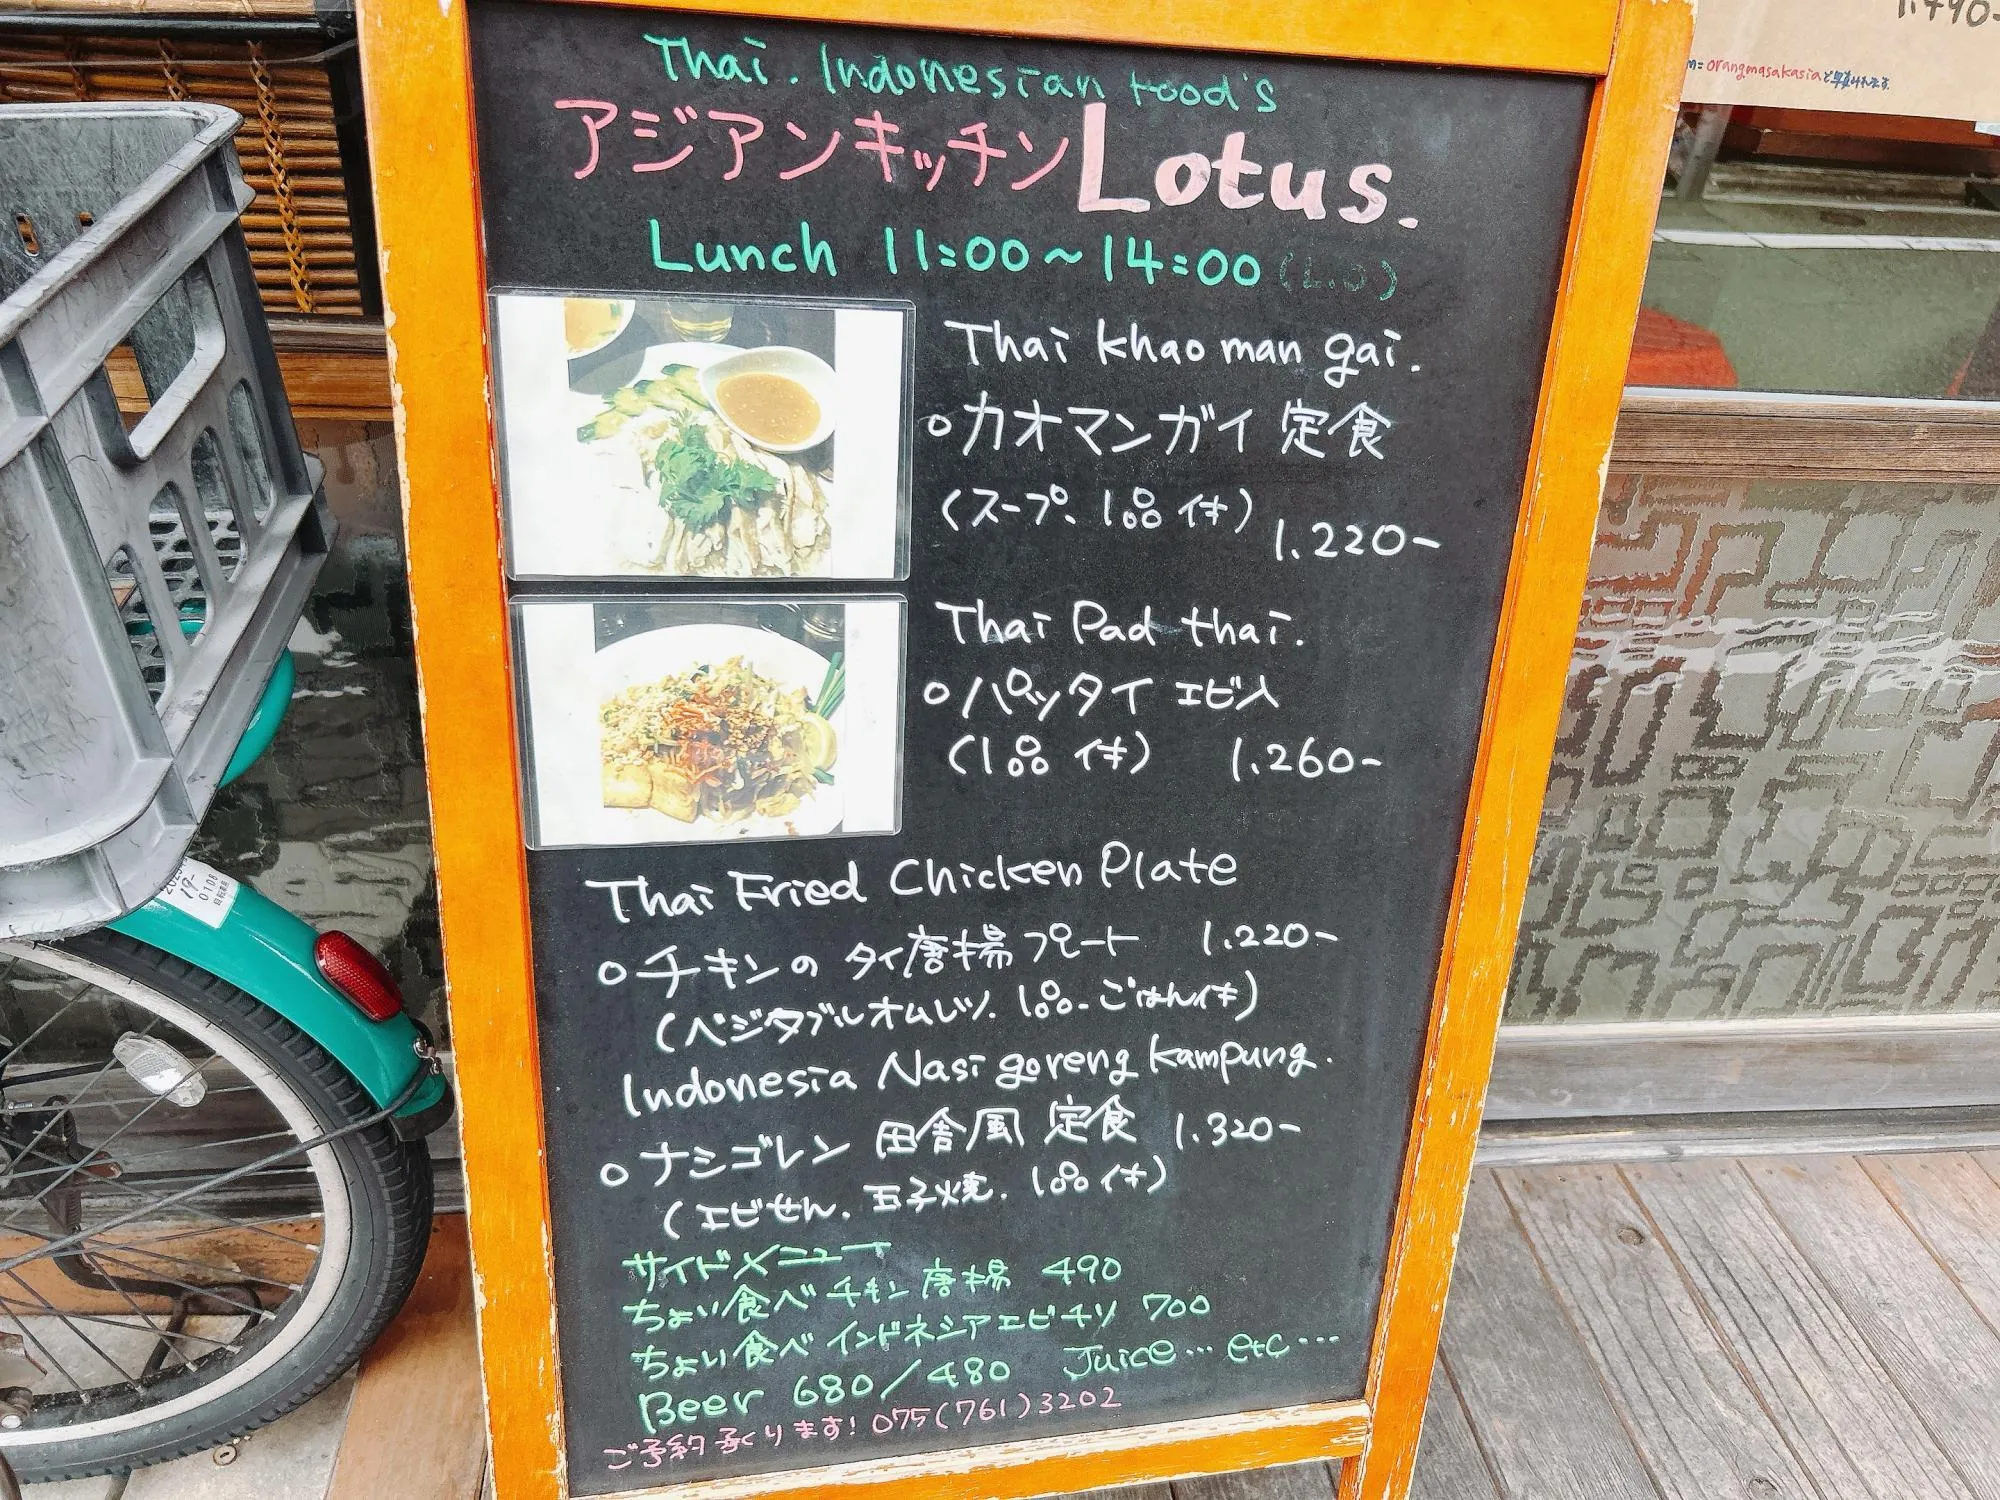 Thai. Indonesian Food's
アジアンキッチン Lotus.
Lunch 11:00～14:00 (L.O)
Thai khao man gai.
○カオマンガイ 定食
(スープ、1品付)
1.220-
Thai Pad thai.
○パッタイ エビ入
(1品付) 1.260-
Thai Fried Chicken Plate
○チキンの タイ唐揚プレート 1.220-
(ベジタブルオムレツ. 1品. ごはん付)
Indonesia Nasi goreng kampung.
○ナシゴレン 田舎風 定食 1.320-
(エビせん. 玉子焼. 1品付)
サイドメニュー
ちょい食べ チキン 唐揚 490
ちょい食べ インドネシアエビチリ 700
Beer 680/480 Juice… etc…
ご予約承ります! 075(761)3202
1.490-
orangmasakasia
19-
0108